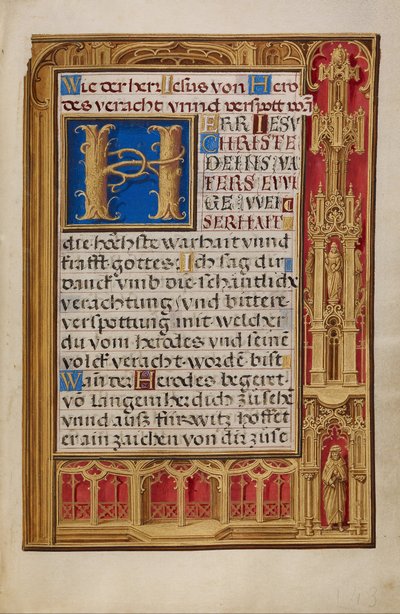 Wie der herr Iesus von Hero
des veracht vnnd verspott war
HERR IESV
CHRISTE
DEINS VA
TERS EWI
GE WEIC
SERHAIT
die höchste warhait vnnd
krafft gottes: Ich sag dir
danck vmb die schantlich
verachtung, vnd bittere
verspottung mit welcher
du vom herodes vnd seinē
volck veracht worden bist
Wan der Herodes begeret
vō langem her dich zusehē
vnnd ausz fürwitz hoffet
er ain zaichen von dir zuse
143